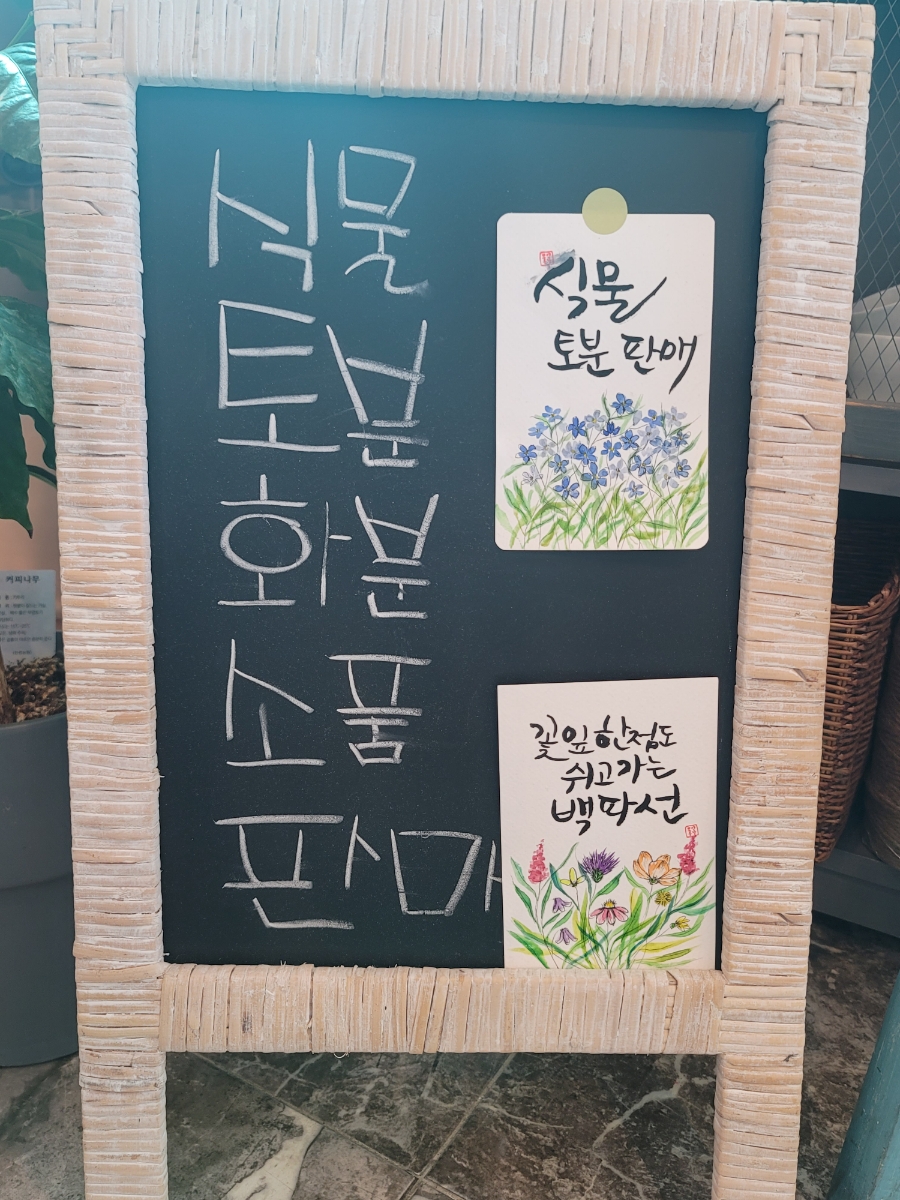 식물
토분
화분
소품
판매
식물
토분 판매
꽃잎 한점도
쉬고가는
백파선
커피나무